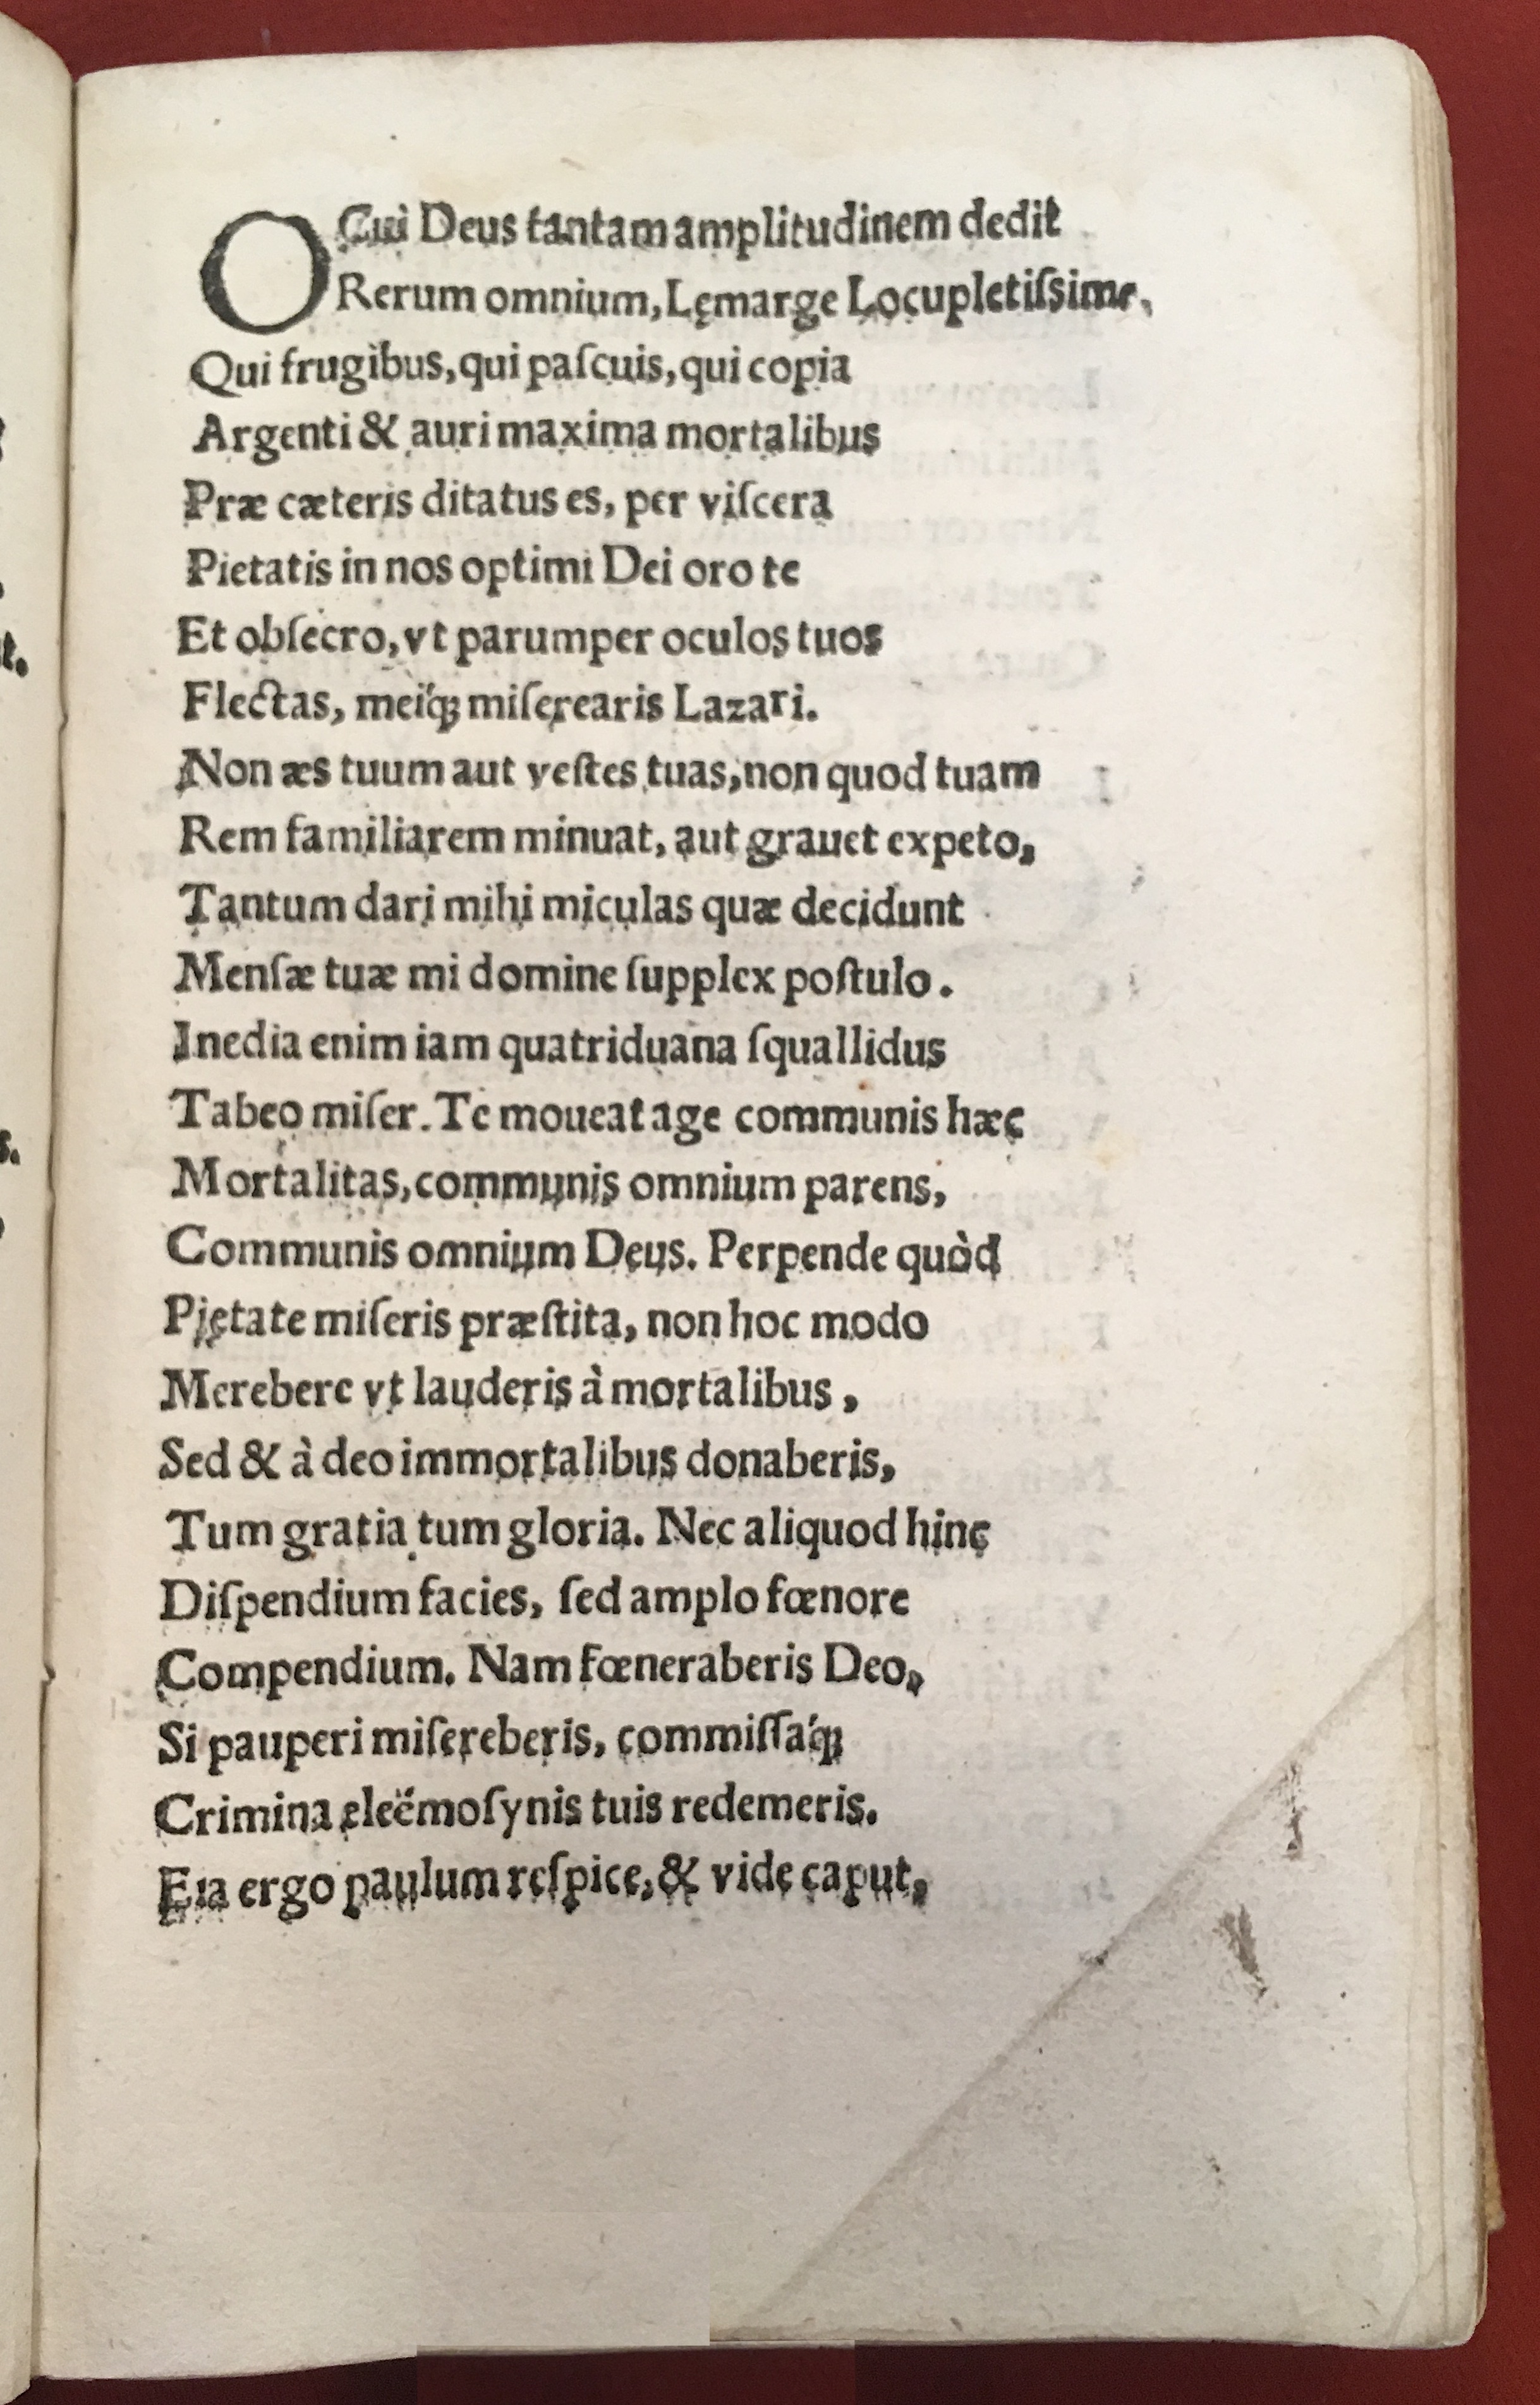 O Cui Deus tantam amplitudinem dedit
Rerum omnium, Lęmarge Locupletiſsime,
Qui frugibus, qui paſcuis, qui copia
Argenti & auri maxima mortalibus
Præ cæteris ditatus es, per viſcera
Pietatis in nos optimi Dei oro te
Et obſecro, vt parumper oculos tuos
Flectas, meiq́; miſerearis Lazari.
Non æs tuum aut veſtes tuas, non quod tuam
Rem familiarem minuat, aut grauet expeto,
Tantum dari mihi miculas quæ decidunt
Menſæ tuæ mi domine ſupplex poſtulo.
Inedia enim iam quatriduana ſquallidus
Tabeo miſer. Te moueat age communis hæc
Mortalitas, communis omnium parens,
Communis omnium Deus. Perpende quòd
Pietate miſeris præſtita, non hoc modo
Merebere vt lauderis à mortalibus,
Sed & à deo immortalibus donaberis,
Tum gratia tum gloria. Nec aliquod hinc
Diſpendium facies, ſed amplo fœnore
Compendium. Nam fœneraberis Deo,
Si pauperi miſereberis, commiſſaq́;
Crimina eleëmoſynis tuis redemeris.
Eia ergo paulum reſpice, & vide caput,